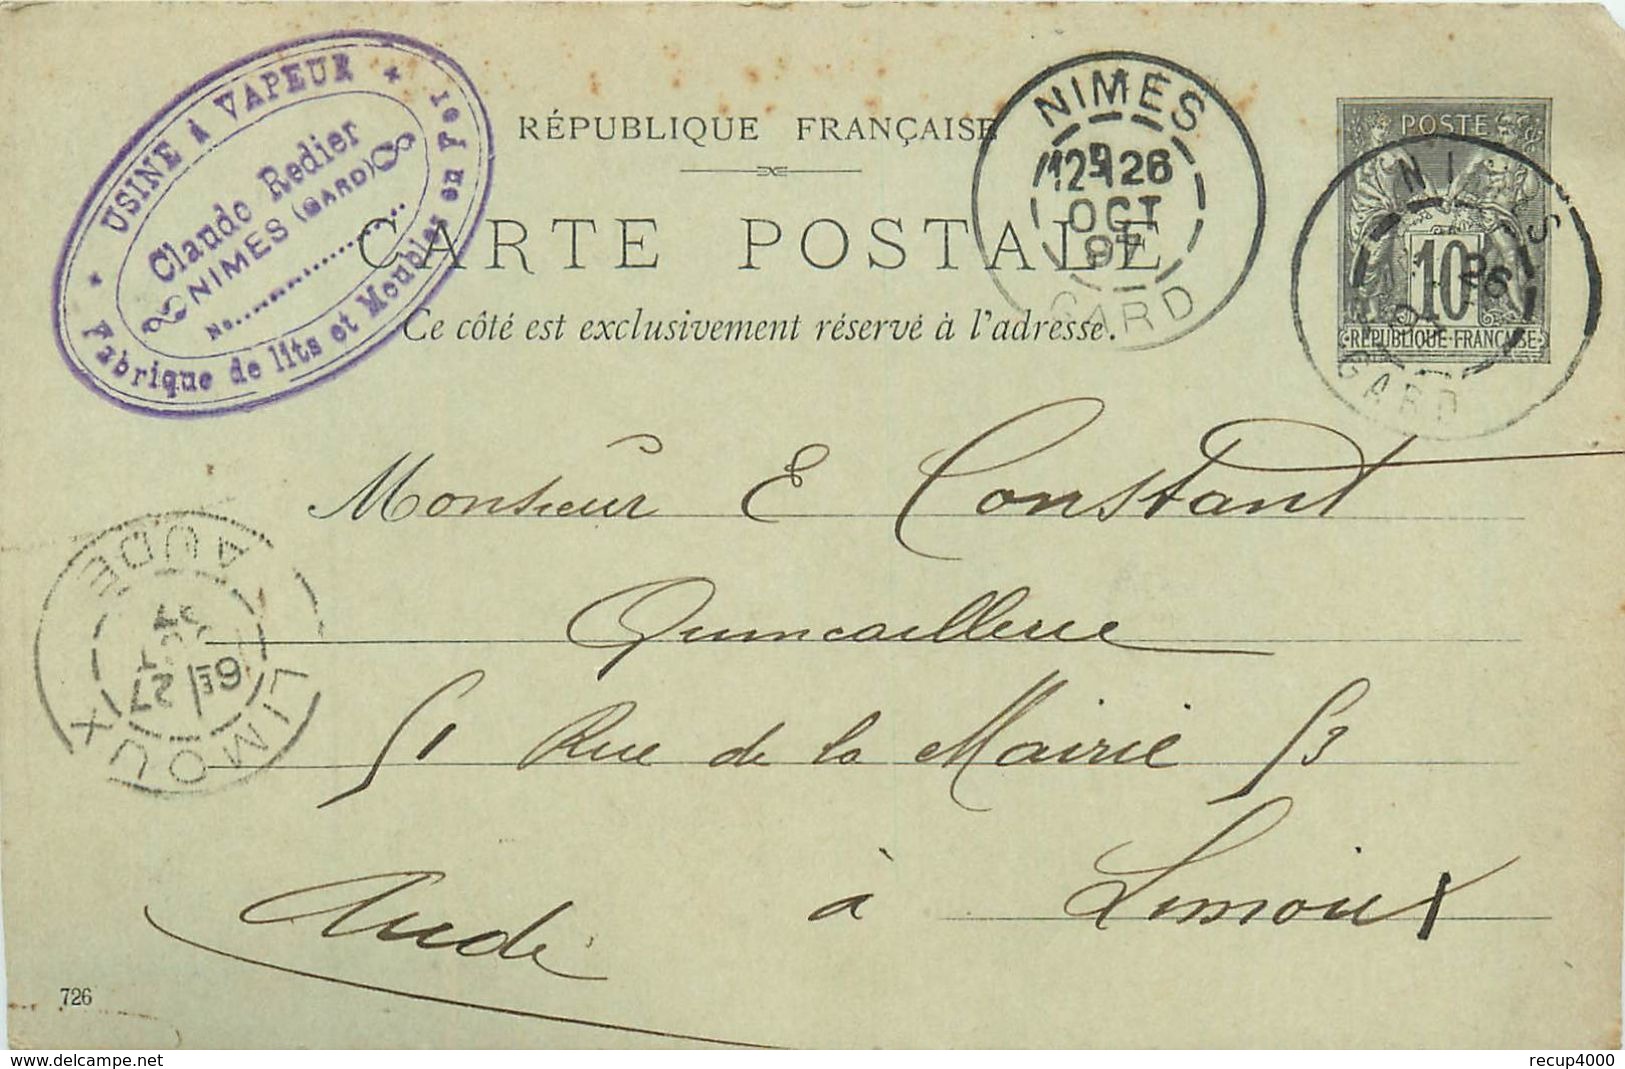 USINE À VAPEUR
Claude Redier
NIMES (GARD)
No
Fabrique de lits et Meubles en fer
RÉPUBLIQUE FRANÇAISE
CARTE POSTALE
Ce côté est exclusivement réservé à l'adresse.
NIMES
12E 26
OCT
97
GARD
POSTE
10
RÉPUBLIQUE FRANÇAISE
NIMES
26
GARD
Monsieur E Constant
Quincaillerie
51 Rue de la Mairie 53
à Limoux
Aude
LIMOUX
6E 27
97
AUDE
726
www.delcampe.net
recup4000